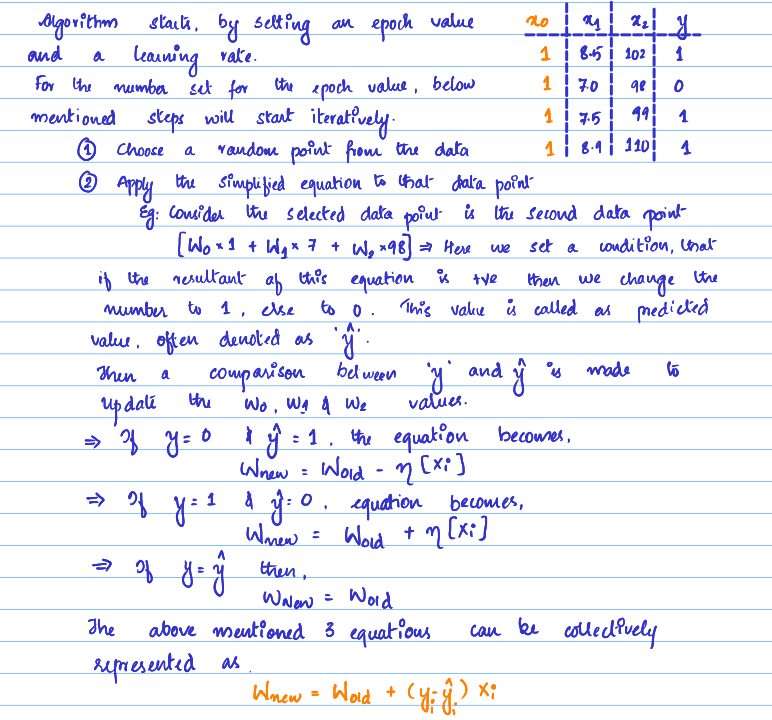 Algorithm starts, by setting an epoch value
and a learning rate.
For the number set for the epoch value, below
mentioned steps will start iteratively.
x0 x1 x2 y
1 8.5 102 1
1 7.0 98 0
1 7.5 99 1
1 8.9 110 1
① Choose a random point from the data
② Apply the simplified equation to that data point
Eg: Consider the selected data point is the second data point
[W0 × 1 + W1 × 7 + W2 × 98] ⇒ Here we set a condition, that
if the resultant of this equation is +ve then we change the
number to 1, else to 0. This value is called as predicted
value, often denoted as 'ŷ'.
Then a comparison between 'y' and ŷ is made to
update the W0, W1 & W2 values.
⇒ If y = 0 & ŷ = 1, the equation becomes,
Wnew = Wold - η [xi]
⇒ If y = 1 & ŷ = 0, equation becomes,
Wnew = Wold + η [xi]
⇒ If y = ŷ then,
WNew = Wold
The above mentioned 3 equations can be collectively
represented as.
Wnew = Wold + (yi - ŷi) xi